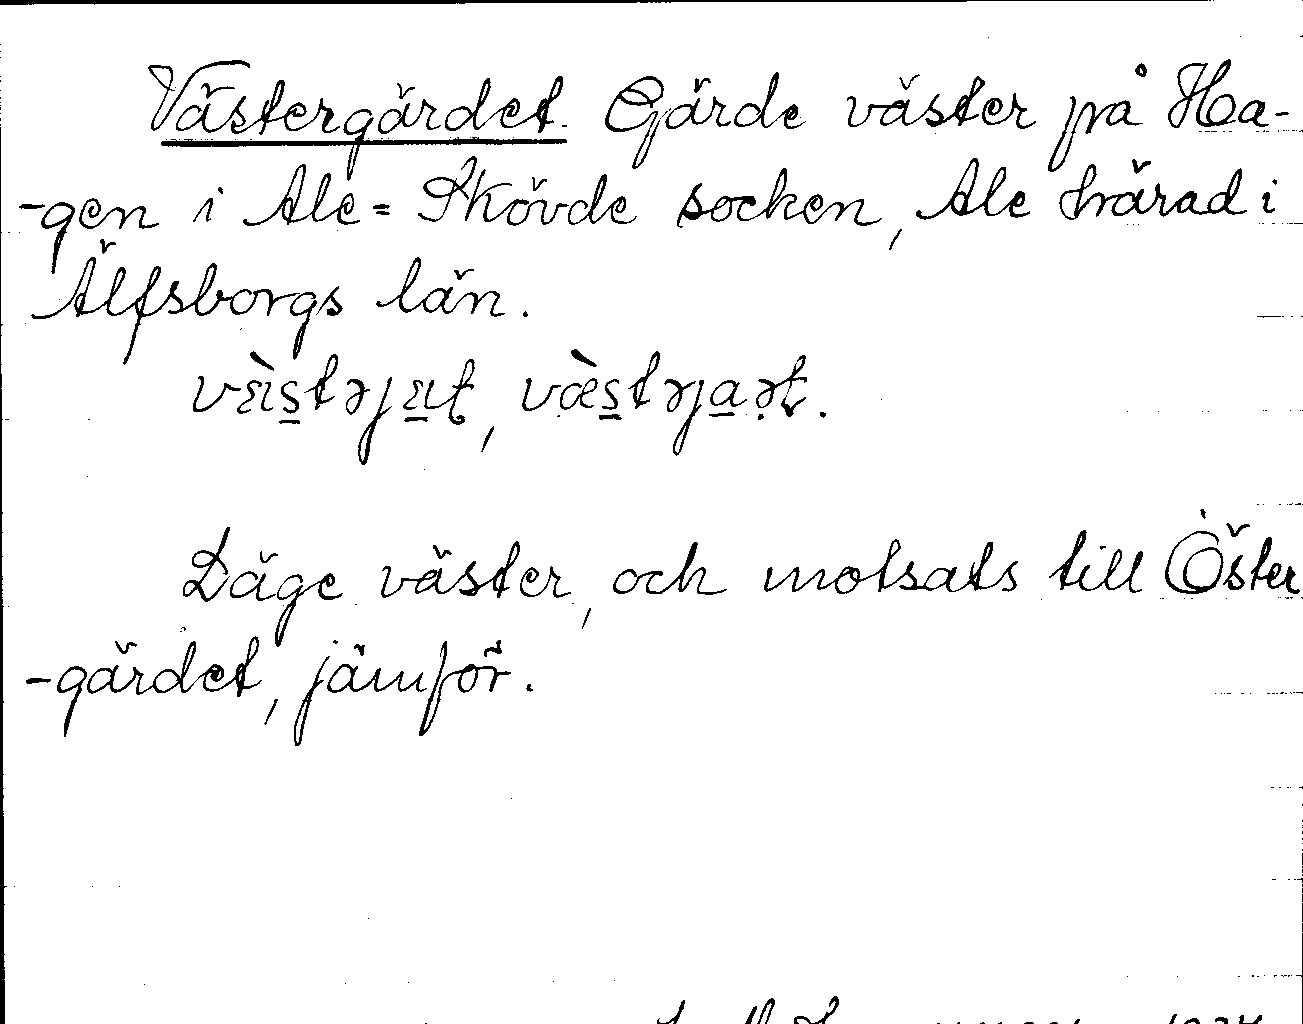 Västergärdet. Gärde väster på Ha-
-gen i Ale=Skövde socken, Ale härad i
Älfsborgs län.
Läge väster, och motsats till Öster
-gärdet, jämför.